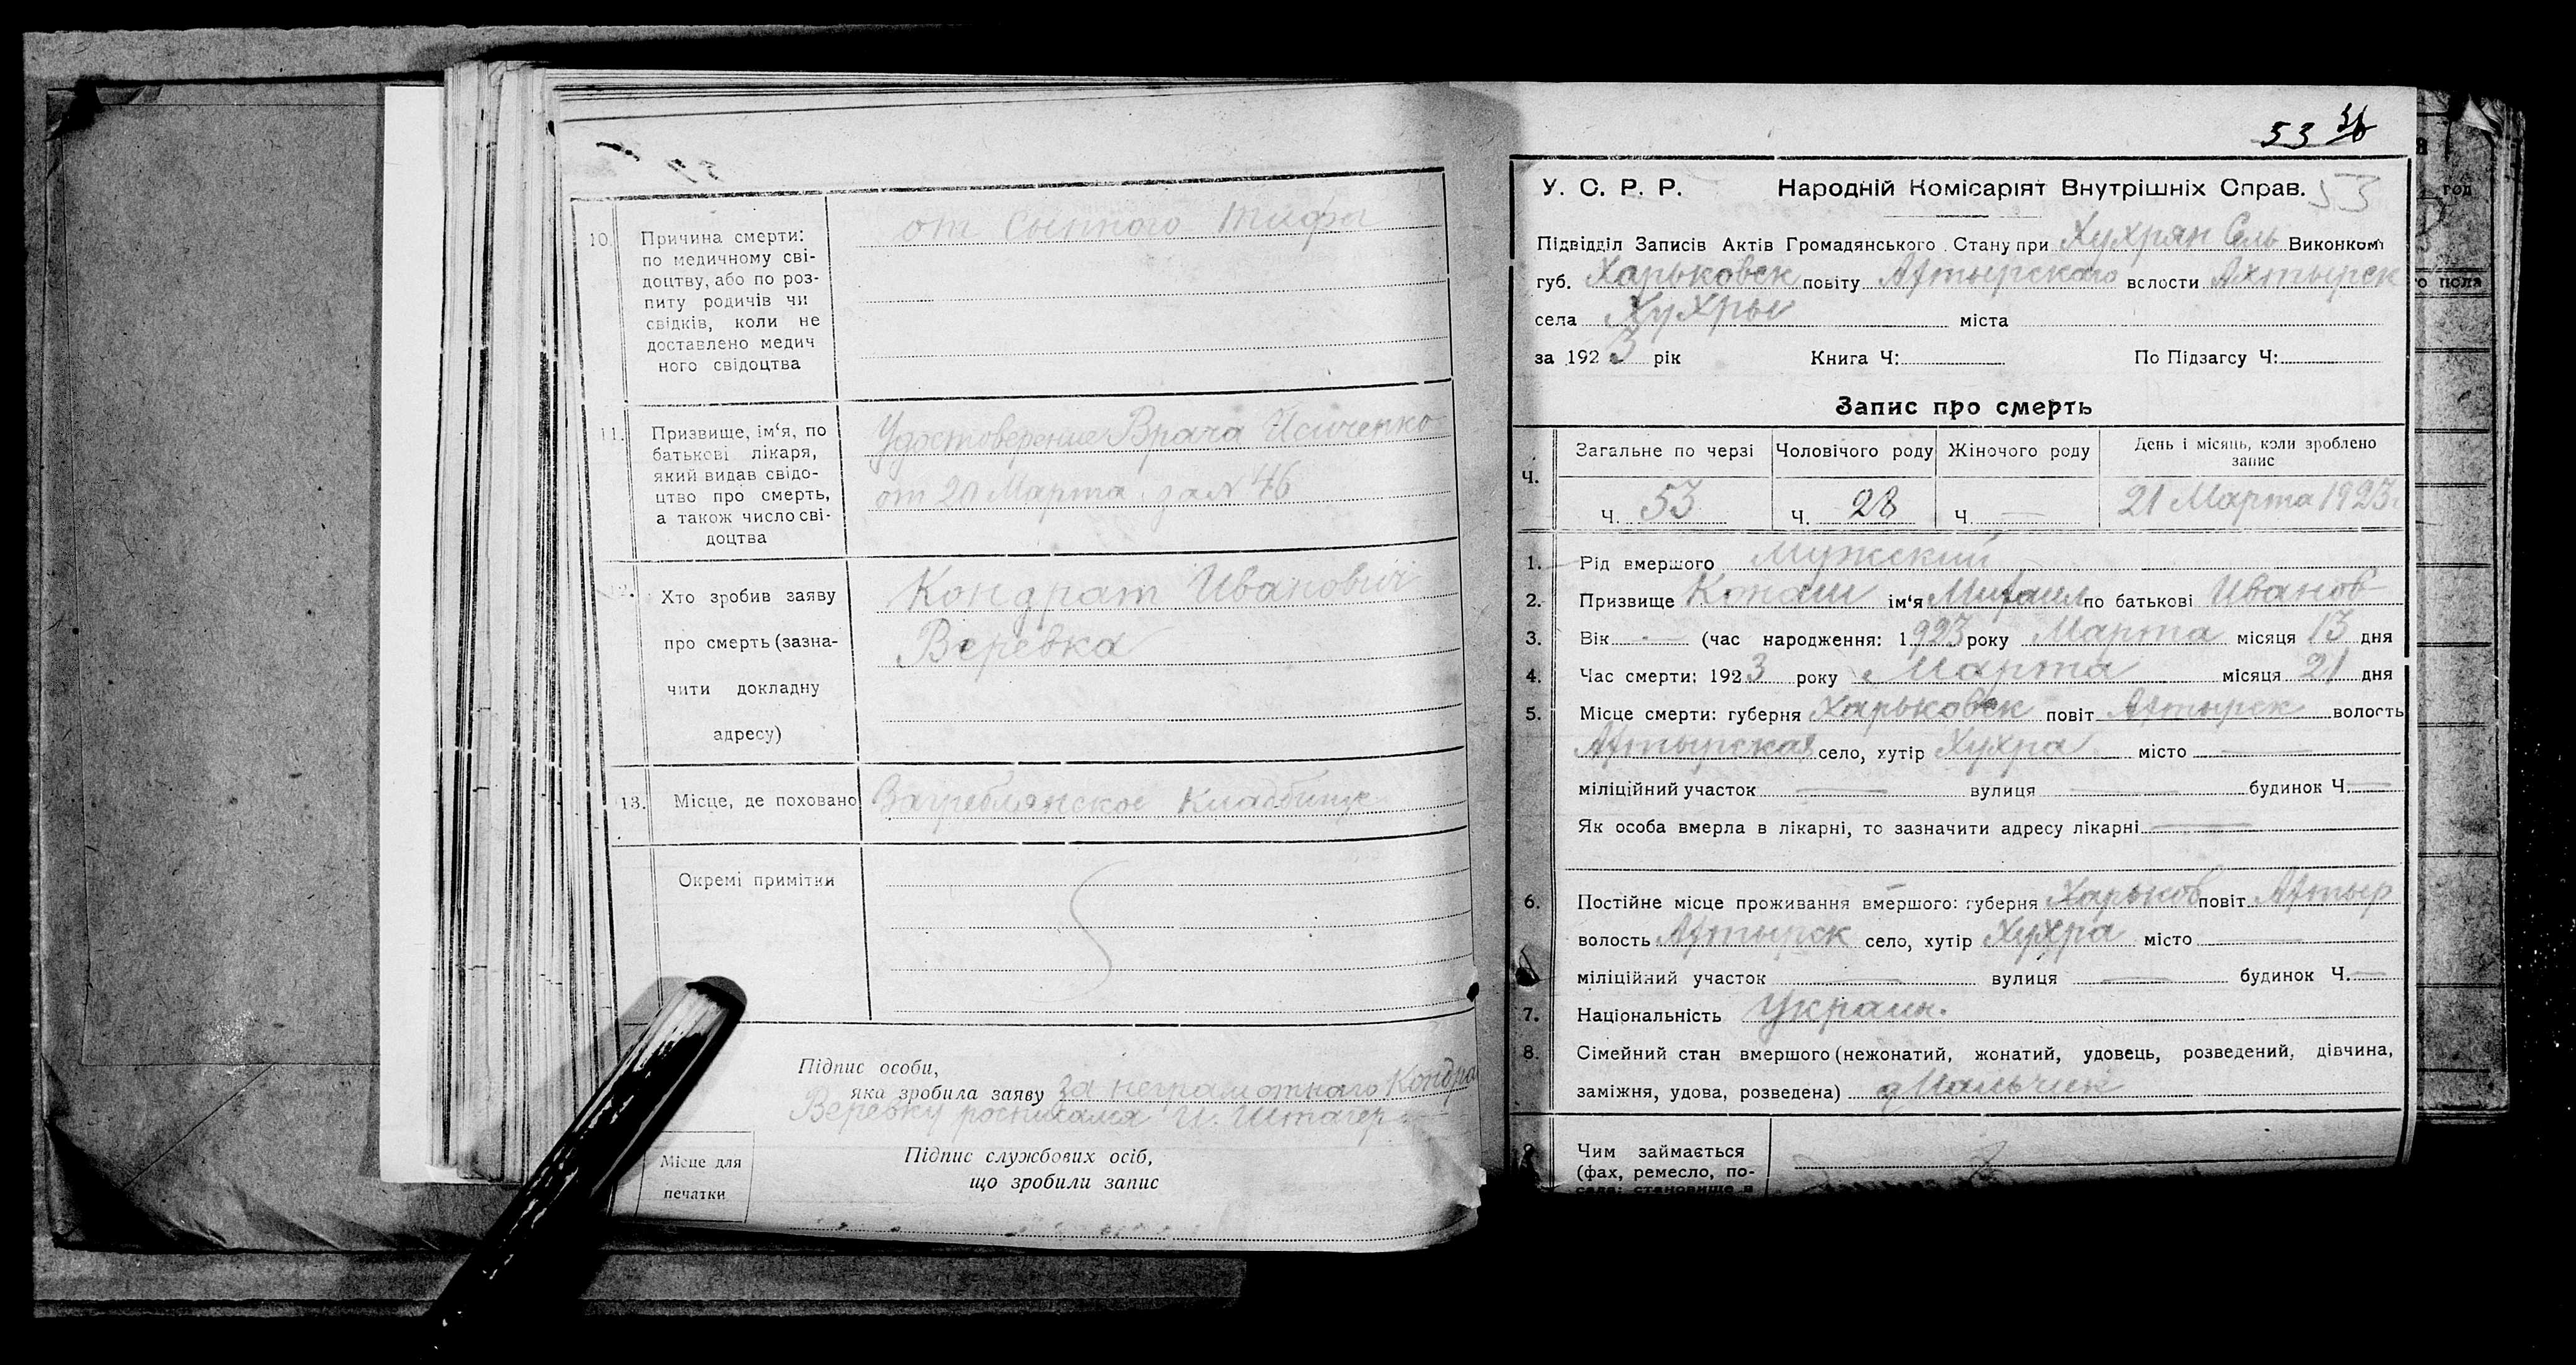 10. Причина смерти:
по медичному сві-
доцтву, або по роз-
питу родичів чи
свідків, коли не
доставлено медич
ного свідоцтва
от Сыпного тифа
11. Призвище, ім'я, по
батькові лікаря,
який видав свідо-
цтво про смерть,
а також число сві-
доцтва
Удостоверение Врача Исиченко
от 20 Марта за № 46
12. Хто зробив заяву
про смерть (зазна-
чити докладну
адресу)
Кондрат Иванович
Веревка
13. Місце, де поховано Загреблянское Кладбище
Окремі примітки
Підпис особи,
яка зробила заяву за неграмотного Кондра
Веревку росписался И. Штагер
Місце для
печатки
Підпис службових осіб,
що зробили запис
53 36
У. С. Р. Р. Народній Комісаріят Внутрішніх Справ. 53
Підвідділ Записів Актів Громадянського Стану при Хухрян Сель Виконкомі
губ. Харьковск повіту Ахтырского вслости Ахтырск
села Хухры міста
за 1923 рік Книга Ч: По Підзагсу Ч:
Запис про смерть
Ч. Загальне по черзі Чоловічого роду Жіночого роду День і місяць, коли зроблено
запис
Ч. 53 Ч. 28 Ч. — 21 Марта 1923.
1. Рід вмершого Мужский
2. Призвище Конаш ім'я Михаил по батькові Иванов
3. Вік — (час народження: 1923 року Марта місяця 13 дня
4. Час смерти: 1923 року Марта місяця 21 дня
5. Місце смерти: губерня Харьковск повіт Ахтырск волость
Ахтырская село, хутір Хухра місто —
міліційний участок — вулиця — будинок Ч. —
Як особа вмерла в лікарні, то зазначити адресу лікарні —
6. Постійне місце проживання вмершого: губерня Харьков повіт Ахтыр
волость Ахтырск село, хутір Хухра місто —
міліційний участок — вулиця — будинок Ч. —
7. Національність Украин.
8. Сімейний стан вмершого (нежонатий, жонатий, удовець, розведений, дівчина,
заміжня, удова, розведена) Мальчик
9. Чим займається
(фах, ремесло, по-
сада; становище в